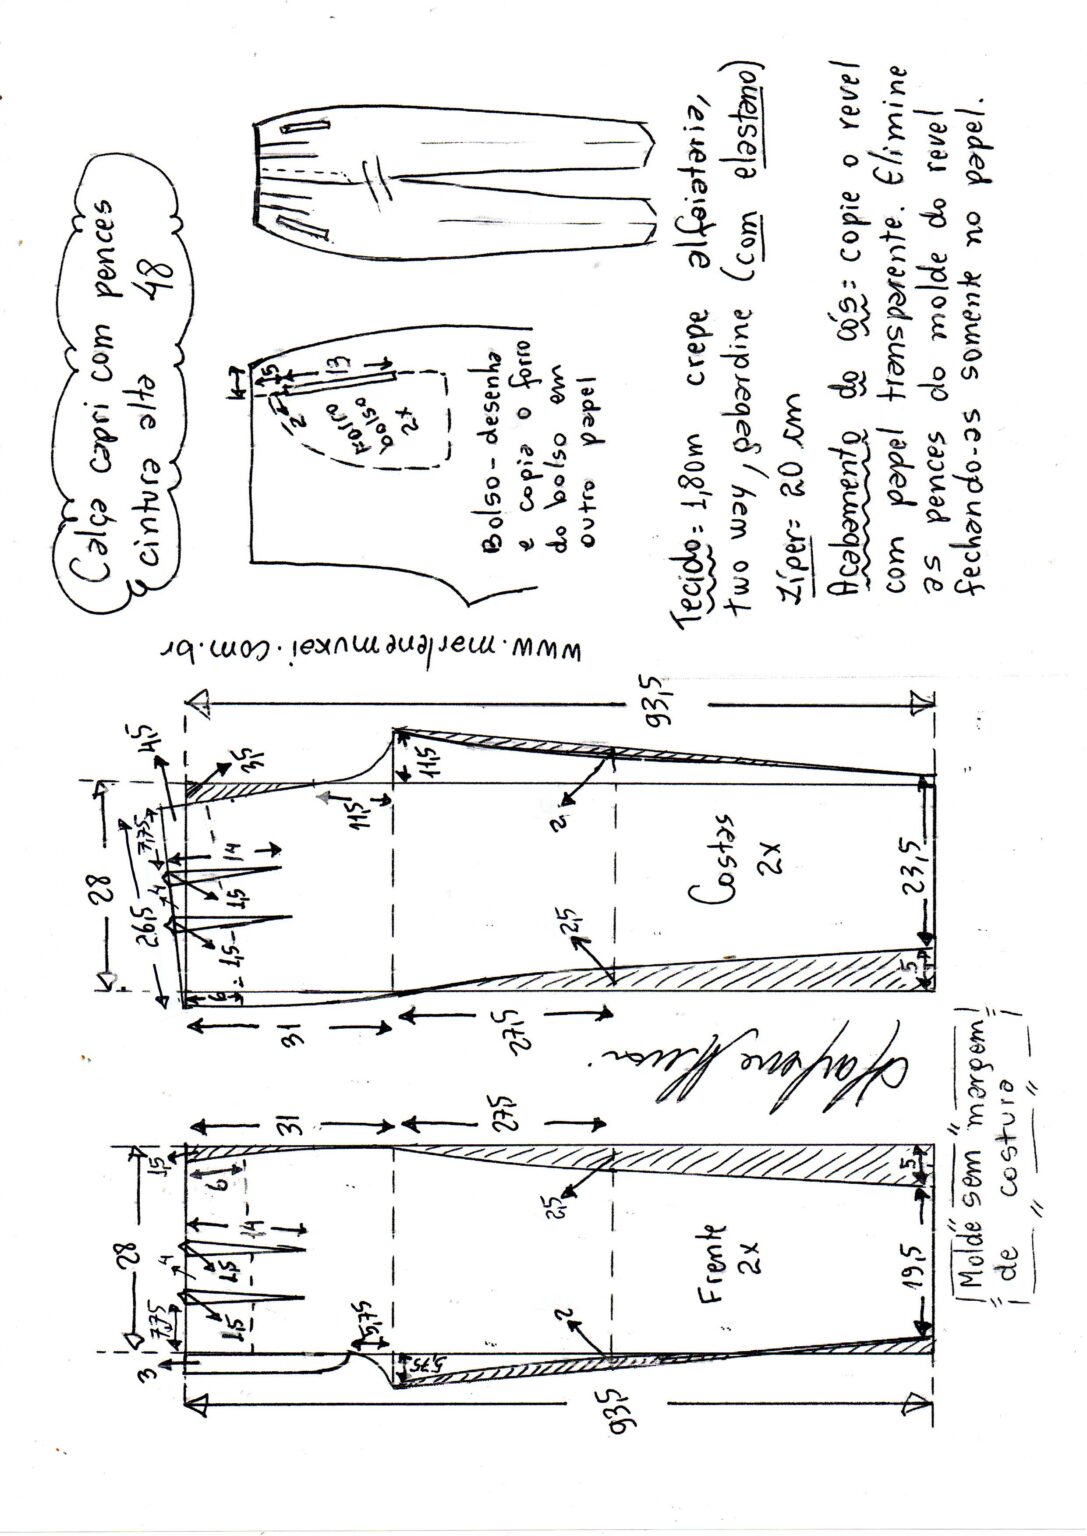 Calça capri com pences
e cintura alta 48
4
5
13
2
Forro
bolso
2x
Bolso - desenha
e copia o forro
do bolso em
outro papel
Tecido = 1,80m crepe alfaiataria,
two way, gabardine (com elastano)
Zíper = 20 cm
Acabamento do cós = copie o revel
com papel transparente. Elimine
as pences do molde do revel
fechando-as somente no papel.
www.marlenemukai.com.br
28
26,5
7,75
4,5
3,5
4
14
1,5
1,5
6
11,5
11,5
31
27,5
2
2,5
Costas
2x
23,5
5
93,5
28
3
7,75
4
1,5
14
1,5
1,5
6
5,75
5,75
31
27,5
2
2,5
Frente
2x
19,5
5
93,5
Molde sem margem
de costura